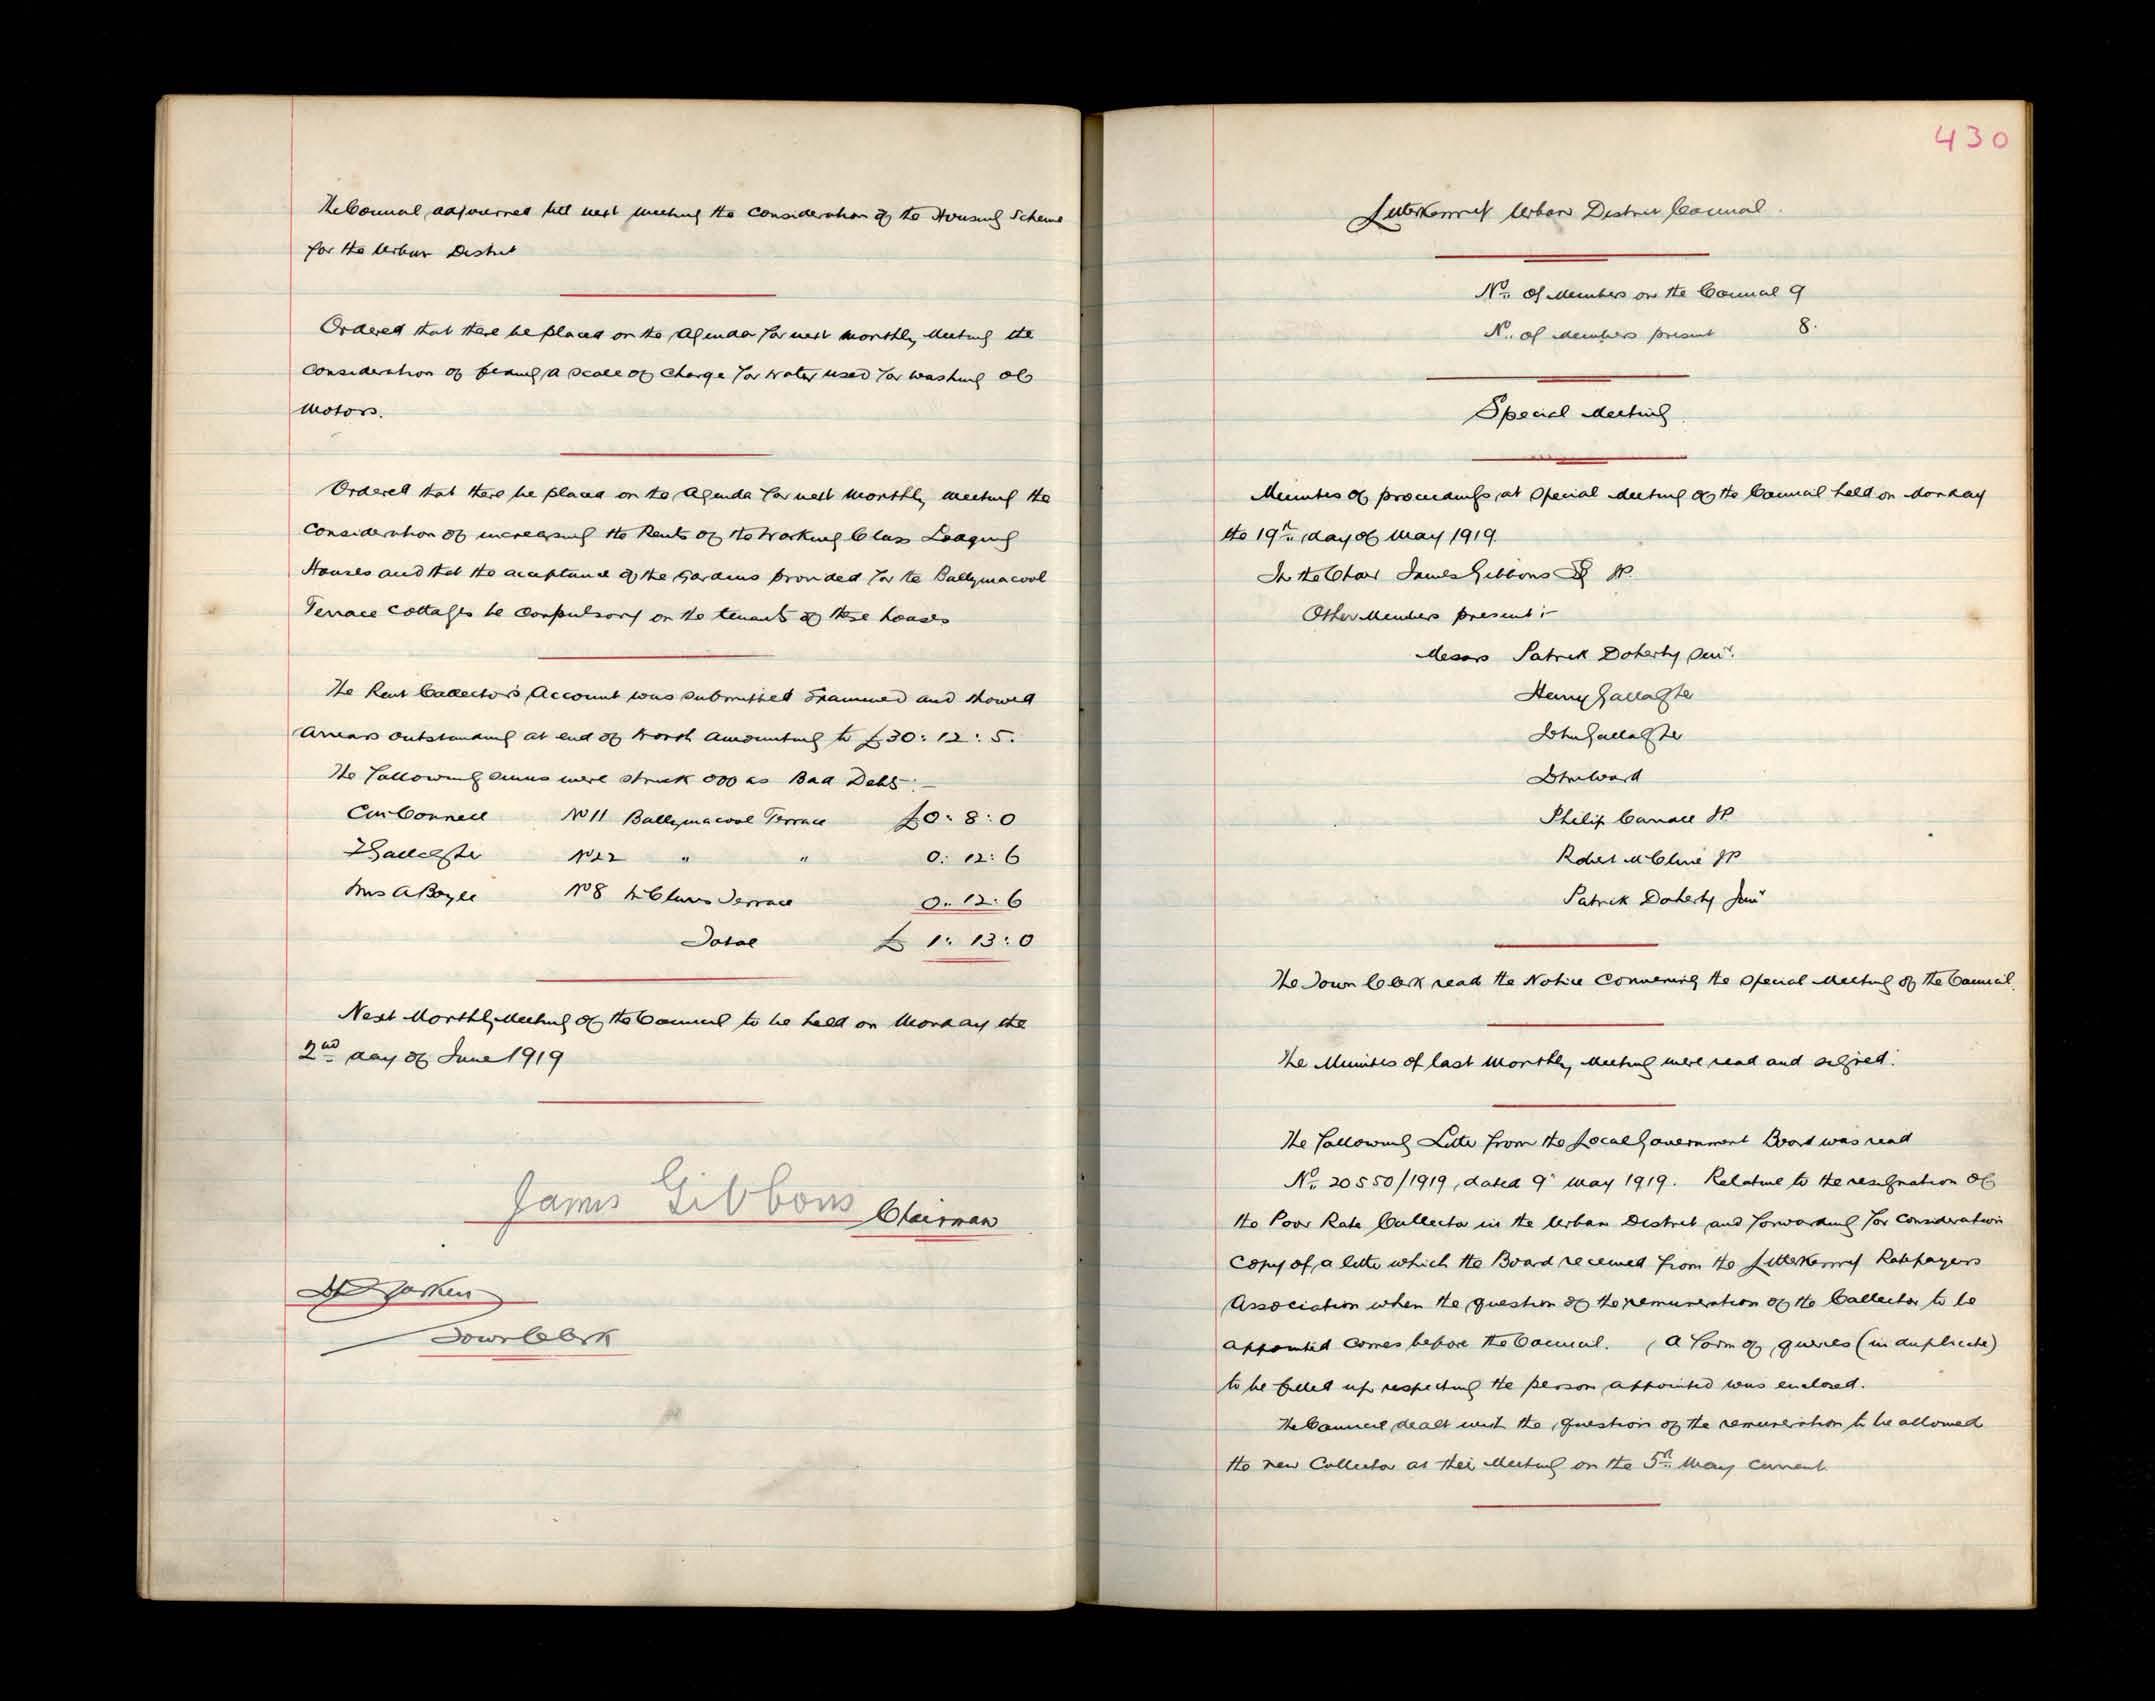 The Council adjourned till next meeting the consideration of the Housing Scheme
for the Urban District
Ordered that there be placed on the Agenda for next monthly Meeting the
consideration of fixing a scale of charge for water used for washing of
motors.
Ordered that there be placed on the Agenda for next monthly meeting the
consideration of increasing the Rents of the Working Class Lodging
Houses and that the acceptance of the Gardens provided for the Ballymacool
Terrace Cottages be compulsory on the tenants of these houses
The Rent Collector's Account was submitted Examined and showed
Arrears outstanding at end of month amounting to £30: 12: 5.
The following sums were struck off as Bad Debts:-
Connell No 11 Ballymacool Terrace £0: 8: 0
Gallagher No 22 " " 0: 12: 6
Mrs A Boyle No 8 McClures Terrace 0: 12: 6
Total £ 1: 13: 0
Next Monthly Meeting of the Council to be held on Monday the
2nd day of June 1919
James Gibbons Chairman
Town Clerk
430
Letterkenny Urban District Council.
No. of Members on the Council 9
No. of Members present 8.
Special Meeting.
Minutes of proceedings at Special Meeting of the Council held on Monday
the 19th day of May 1919
In the Chair James Gibbons Esq JP.
Other Members present:-
Messrs Patrick Doherty Senr.
Henry Gallagher
John Gallagher
John Ward
Philip Carroll JP
Robert McClure JP
Patrick Doherty Junr
The Town Clerk read the Notice Convening the Special Meeting of the Council.
The Minutes of last Monthly Meeting were read and signed.
The following Letter from the Local Government Board was read
No. 20550/1919, dated 9th May 1919. Relative to the resignation of
the Poor Rate Collector in the Urban District and forwarding for consideration
Copy of a letter which the Board received from the Letterkenny Ratepayers
Association when the question of the remuneration of the Collector to be
appointed comes before the Council. A Form of queries (in duplicate)
to be filled up respecting the person appointed was enclosed.
The Council dealt with the question of the remuneration to be allowed
the new Collector at their Meeting on the 5th May current.